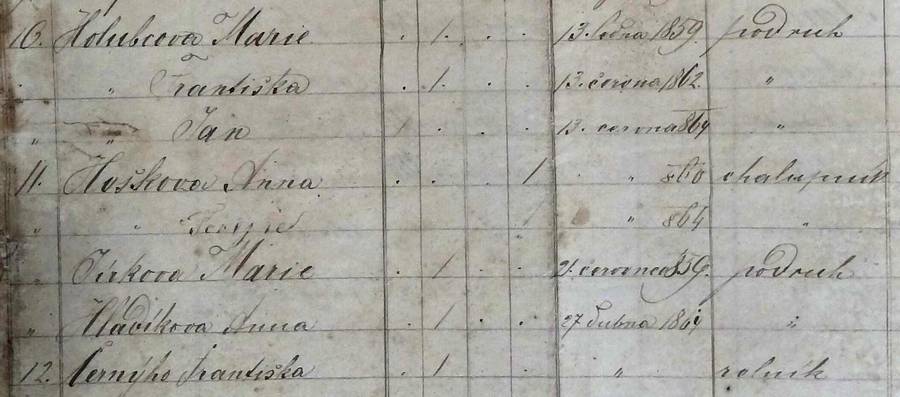 10. Holubcova Marie . 1 . . 13. ledna 1859. podruh
" Frantiska . 1 . . 13. června 1862. "
" " Jan 1 . . . 13. června 1864 "
11. Hoškova Anna . . . 1 . " 860 chalupník
" " " 864 "
" Jirkova Marie . 1 . . 21. července 859. podruh
" Hládíkova Anna . 1 . . 27 dubna 1864 "
12. Černýho Frantiska . 1 . " rolník